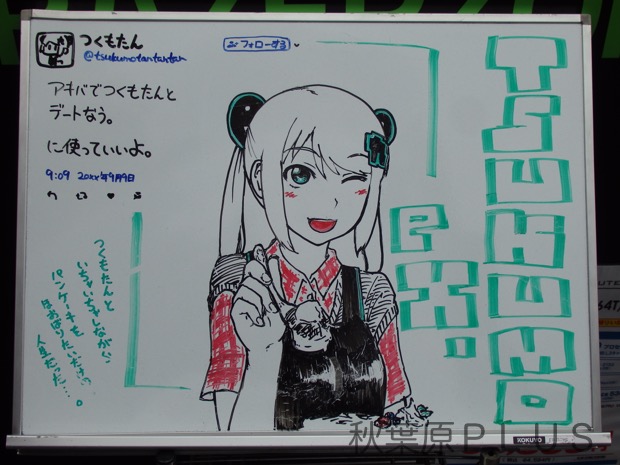 つくもたん
@tsukumotantantan
フォローする
アキバでつくもたんと
デートなう。
に使っていいよ。
9:09 20xx年9月9日
TSUKUMO
eX.
つくもたんと
いちゃいちゃしながら
パンケーキを
ほおばりたいだけの
人生だった…。
KOKUYO
64T/
秋葉原PLUS